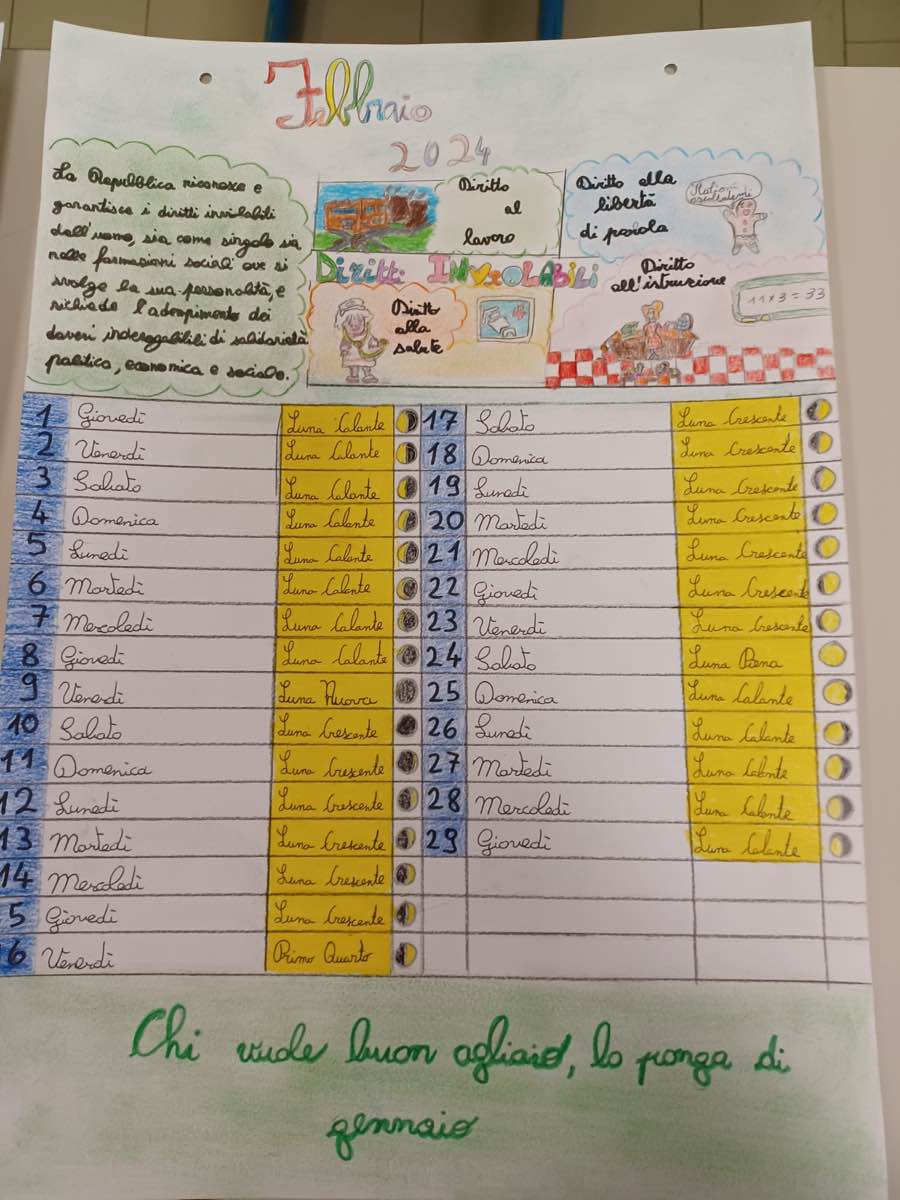 Febbraio
2024
La Repubblica riconosce e
garantisce i diritti inviolabili
dell'uomo, sia come singolo sia
nelle formazioni sociali ove si
svolge la sua personalità, e
richiede l'adempimento dei
doveri inderogabili di solidarietà
politica, economica e sociale.
Diritto
al
lavoro
Diritto alla
libertà
di parola
Diritti INVIOLABILI
Diritto
alla
salute
Diritto
all'istruzione
11 x 3 = 33
1 Giovedì Luna Calante
2 Venerdì Luna Calante
3 Sabato Luna Calante
4 Domenica Luna Calante
5 Lunedì Luna Calante
6 Martedì Luna Calante
7 Mercoledì Luna Calante
8 Giovedì Luna Calante
9 Venerdì Luna Nuova
10 Sabato Luna Crescente
11 Domenica Luna Crescente
12 Lunedì Luna Crescente
13 Martedì Luna Crescente
14 Mercoledì Luna Crescente
5 Giovedì Luna Crescente
6 Venerdì Primo Quarto
17 Sabato Luna Crescente
18 Domenica Luna Crescente
19 Lunedì Luna Crescente
20 Martedì Luna Crescente
21 Mercoledì Luna Crescente
22 Giovedì Luna Crescente
23 Venerdì Luna Crescente
24 Sabato Luna Piena
25 Domenica Luna Calante
26 Lunedì Luna Calante
27 Martedì Luna Calante
28 Mercoledì Luna Calante
29 Giovedì Luna Calante
Chi vuole buon agliaio, lo ponga di
gennaio